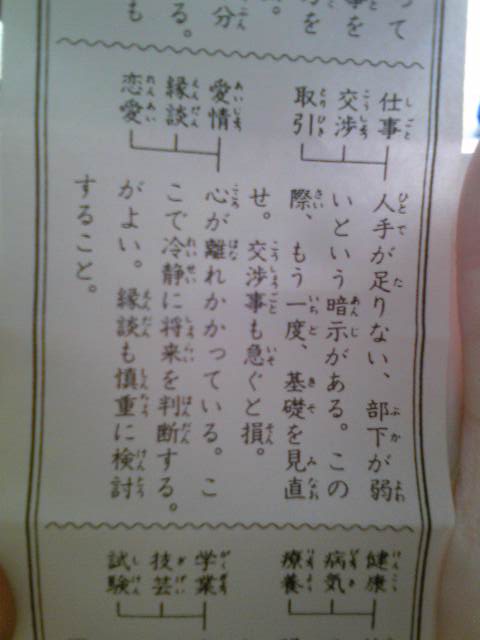 って
事を
分を
る。
も
仕事
交渉
取引
人手が足りない、部下が弱
いという暗示がある。この
際、もう一度、基礎を見直
せ。交渉事も急ぐと損。
愛情
縁談
恋愛
心が離れかかっている。こ
こで冷静に将来を判断する。
がよい。縁談も慎重に検討
すること。
健康
病気
療養
学業
技芸
試験